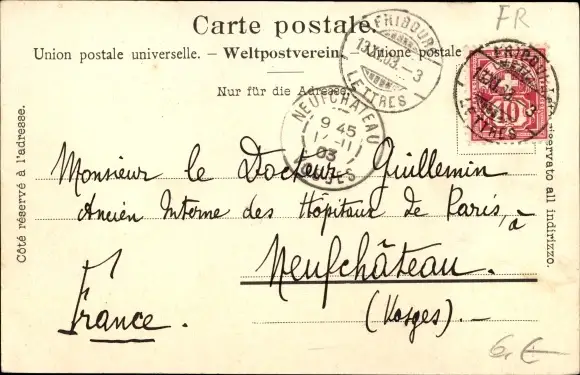 Carte postale.
FR
Union postale universelle. – Weltpostverein. – Unione postale
Nur für die Adresse.
FRIBOURG
13.XI.03. 3
LETTRES
FRIBOURG
LETTRES
10
NEUFCHATEAU
9 45
03
VOSGES
Côté réservé à l'adresse.
Monsieur le Docteur Guillemin
Ancien Interne des Hôpitaux de Paris, à
Neufchâteau.
(Vosges). –
France.
riservato all indirizzo.
6,- €